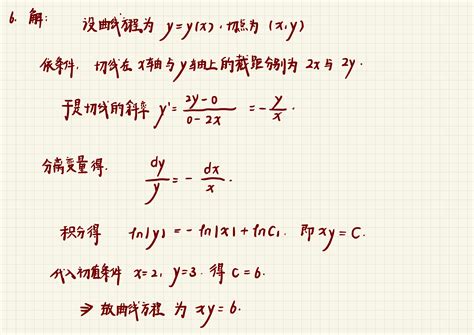 6. 解: 设曲线方程为 y=y(x), 切点为 (x,y)
依条件, 切线在 x轴与y轴上的截距分别为 2x 与 2y.
于是切线的斜率 y' = \frac{2y-0}{0-2x} = -\frac{y}{x}.
分离变量得. \frac{dy}{y} = -\frac{dx}{x}.
积分得 ln|y| = -ln|x| + lnC₁. 即 xy=C.
代入初值条件 x=2, y=3. 得 C=6.
⇒ 故曲线方程 为 xy=6.